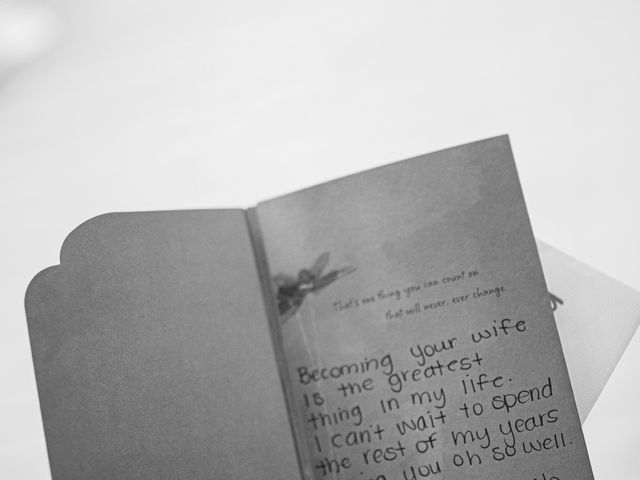 That's one thing you can count on
that will never, ever change.
Becoming your wife
is the greatest
thing in my life.
I can't wait to spend
the rest of my years
you oh so well.